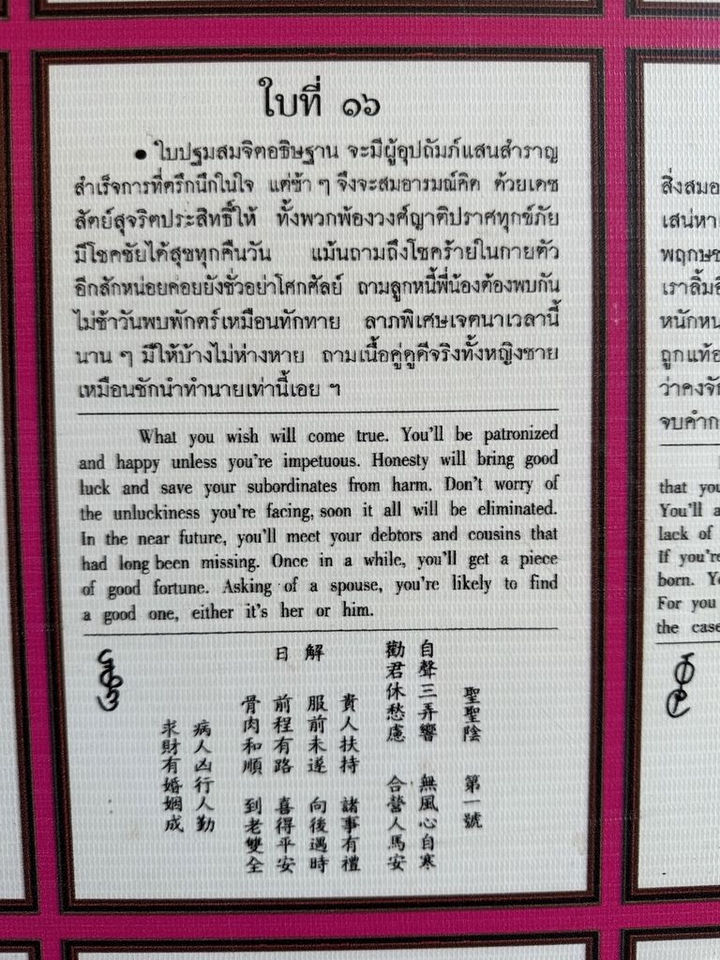 ใบที่ ๑๖
● ใบปฐมสมจิตอธิษฐาน จะมีผู้อุปถัมภ์แสนสำราญ
สำเร็จการที่ตรึกนึกในใจ แต่ช้า ๆ จึงจะสมอารมณ์คิด ด้วยเดช
สัตย์สุจริตประสิทธิ์ให้ ทั้งพวกพ้องวงศ์ญาติปราศทุกข์ภัย
มีโชคชัยได้สุขทุกคืนวัน แม้นถามถึงโชคร้ายในกายตัว
อีกสักหน่อยค่อยยังชั่วอย่าโศกศัลย์ ถามลูกหนี้พี่น้องต้องพบกัน
ไม่ช้าวันพบพักตร์เหมือนทักทาย ลาภพิเศษเจตนาเวลานี้
นาน ๆ มีให้บ้างไม่ห่างหาย ถามเนื้อคู่คูดีจริงทั้งหญิงชาย
เหมือนชักนำทำนายเท่านี้เอย ฯ
What you wish will come true. You'll be patronized
and happy unless you're impetuous. Honesty will bring good
luck and save your subordinates from harm. Don't worry of
the unluckiness you're facing, soon it all will be eliminated.
In the near future, you'll meet your debtors and cousins that
had long been missing. Once in a while, you'll get a piece
of good fortune. Asking of a spouse, you're likely to find
a good one, either it's her or him.
聖聖陰 第一號
自聲三弄響 無風心自寒
勸君休愁慮 合營人馬安
解日
貴人扶持 諸事有禮
服前未遂 向後遇時
前程有路 喜得平安
骨肉和順 到老雙全
病人凶行人勤
求財有婚姻成
สิ่งสมอ
เสน่หา
พฤกษช
เราลิ้ม
หนักหน
ถูกแท้อ
ว่าคงจัก
จบคำก
that you
You'll a
lack of
If you're
born. Yo
For you
the case